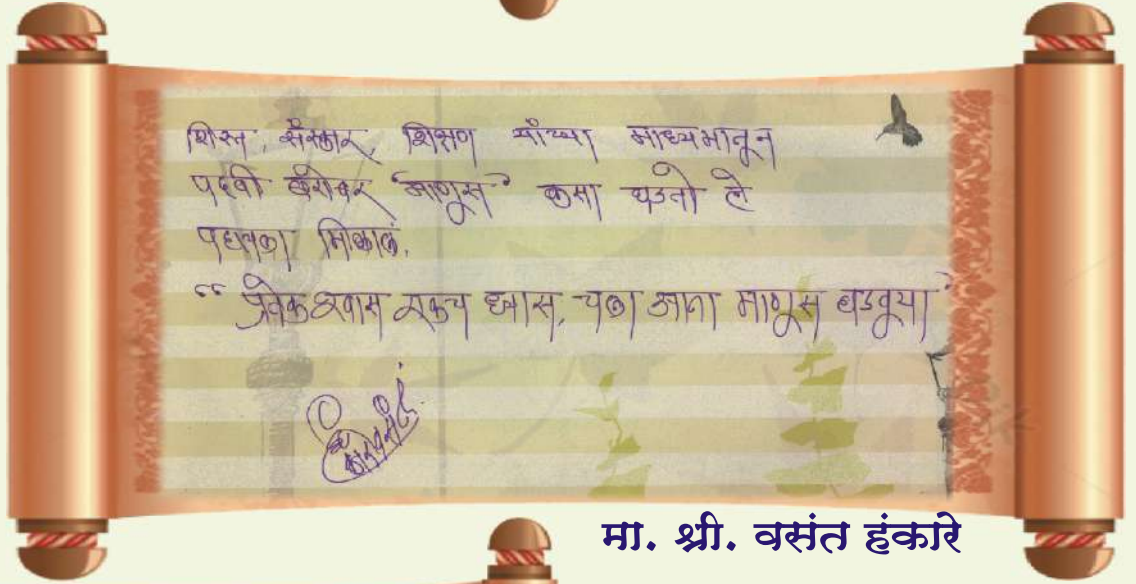 शिस्त, संस्कार, शिक्षण यांच्या माध्यमातून
पदवी बरोबर "माणूस" कसा घडतो ते
पहायला मिळालं.
"प्रत्येक श्वास एकच ध्यास, चला आता माणूस घडवूया"
मा. श्री. वसंत हंकारे